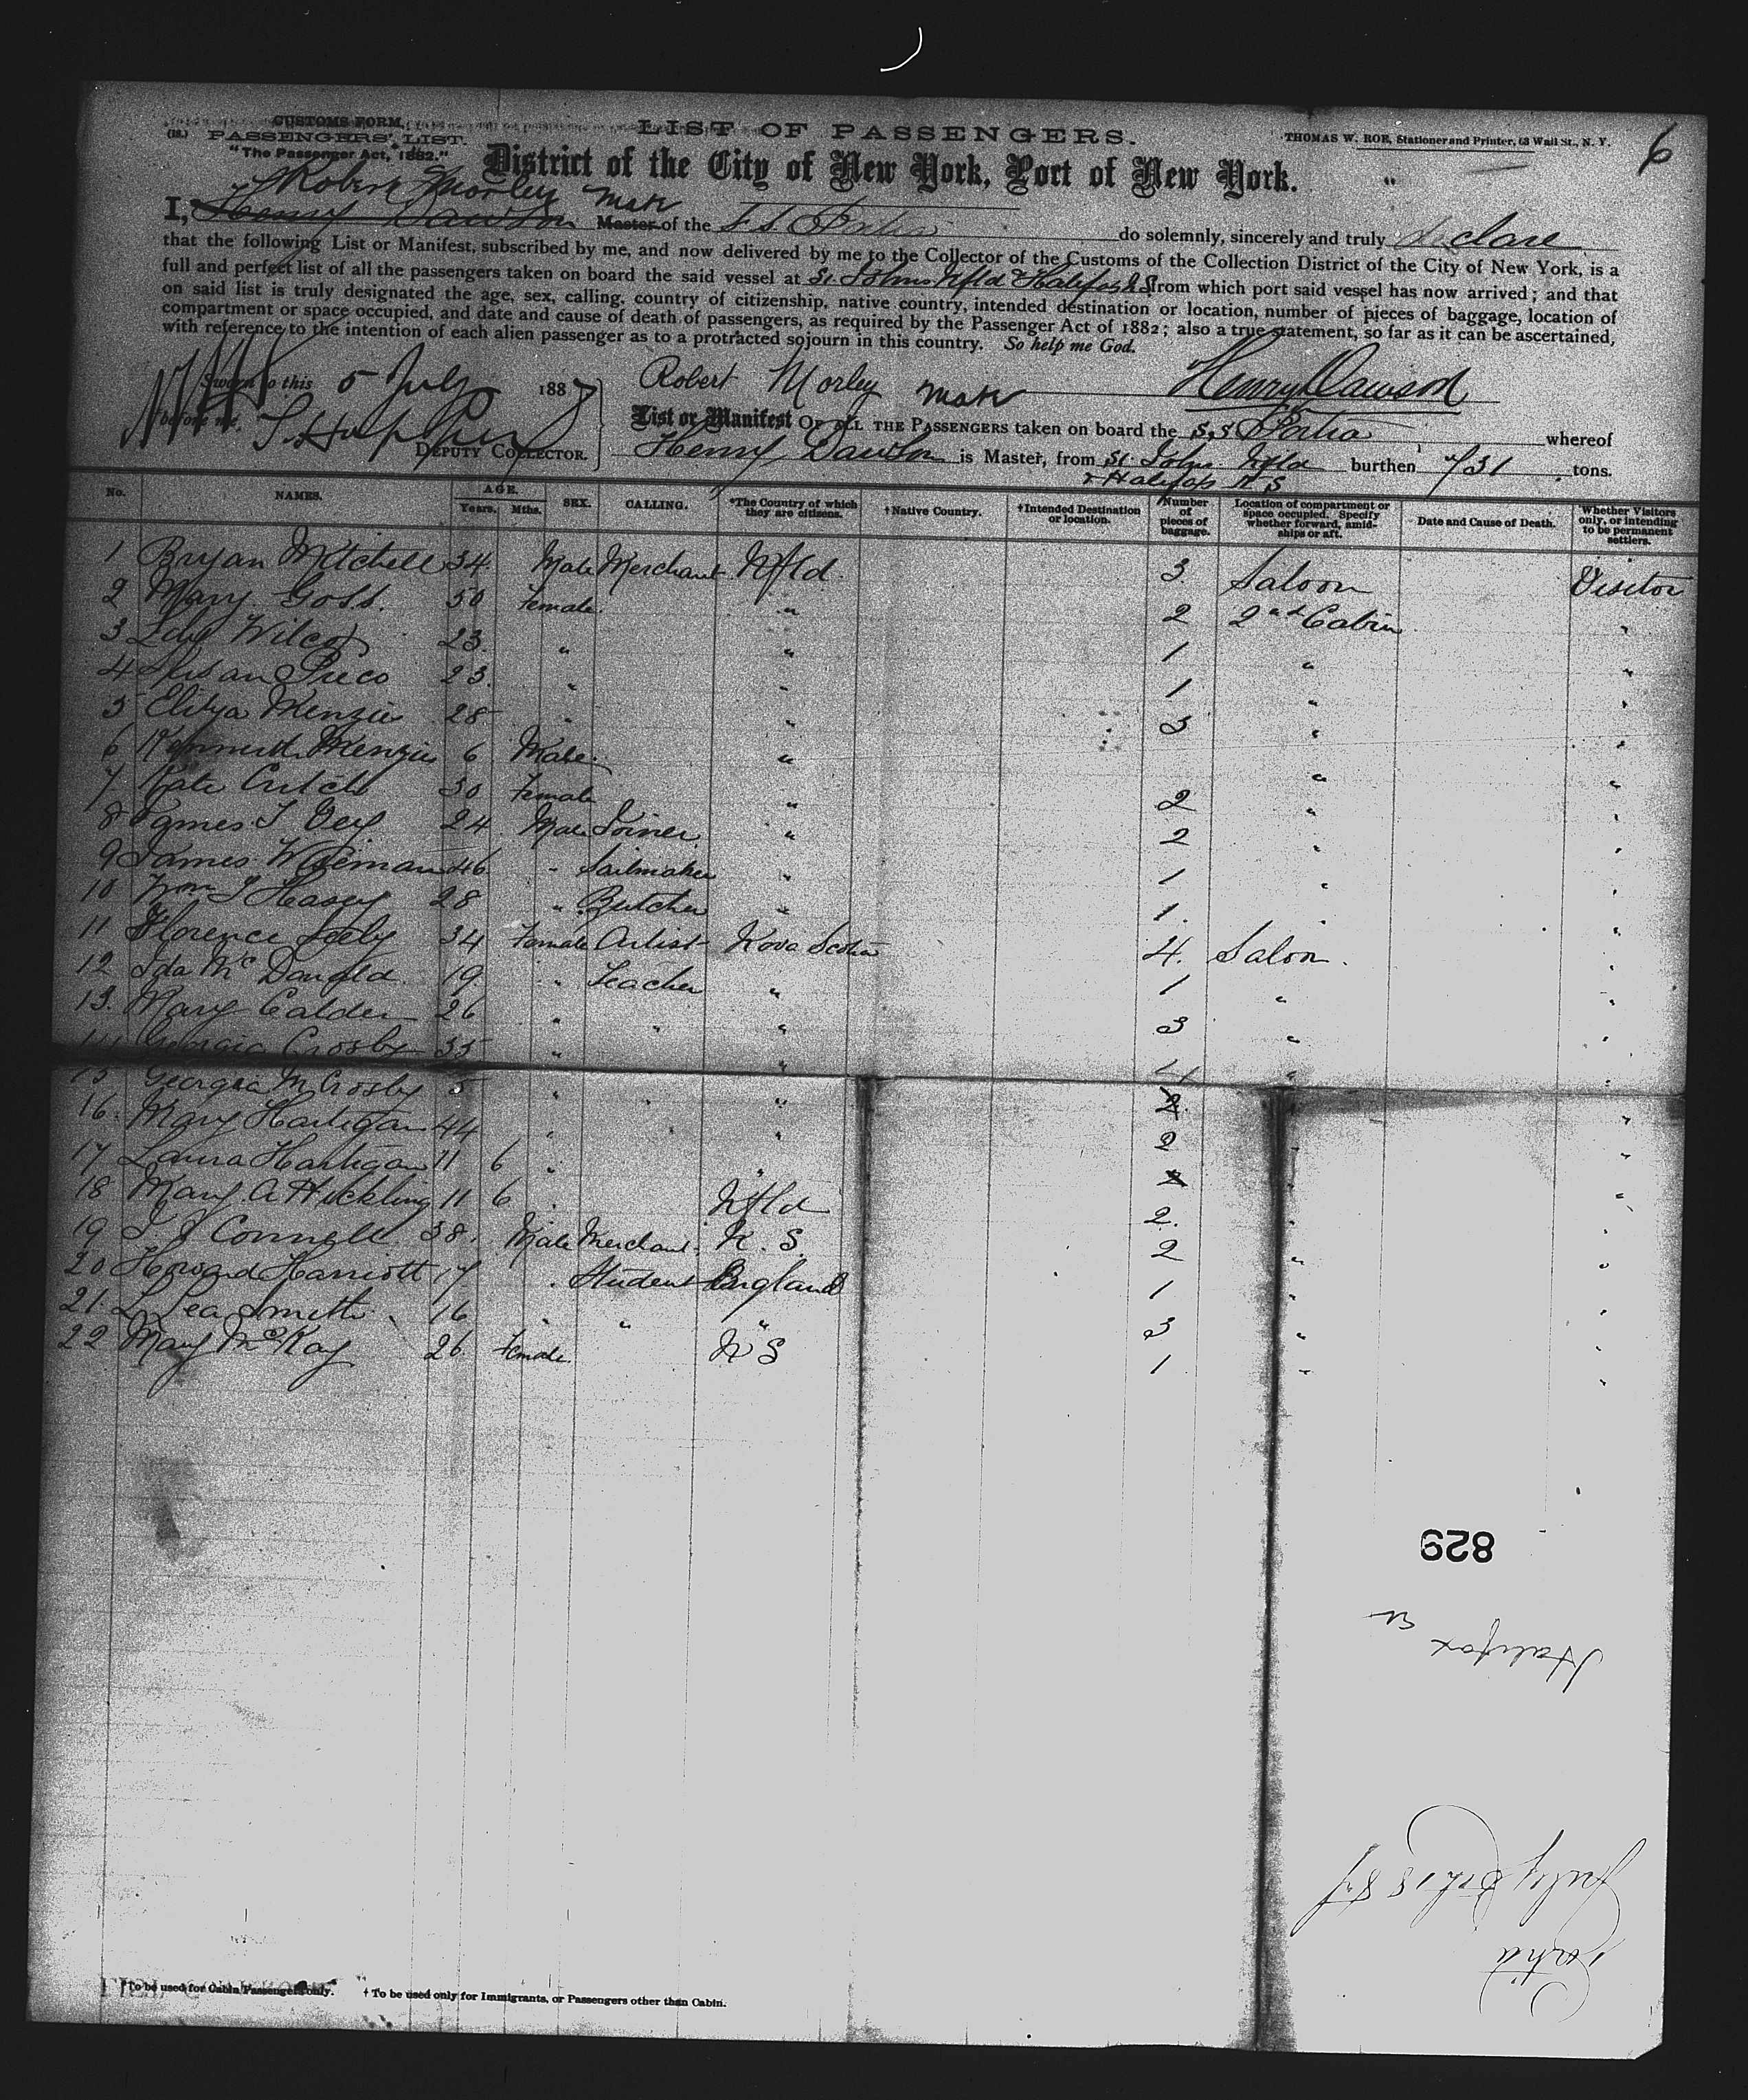 6
CUSTOMS FORM.
(18.) PASSENGERS' LIST.
"The Passenger Act, 1882."
LIST OF PASSENGERS.
THOMAS W. ROE, Stationer and Printer, 63 Wall St., N. Y.
District of the City of New York, Port of New York.
Robert Morley Mate
I, Henry Dawson Master of the S S Portia do solemnly, sincerely and truly declare
that the following List or Manifest, subscribed by me, and now delivered by me to the Collector of the Customs of the Collection District of the City of New York, is a
full and perfect list of all the passengers taken on board the said vessel at St. Johns Nfld & Halifax N S from which port said vessel has now arrived; and that
on said list is truly designated the age, sex, calling, country of citizenship, native country, intended destination or location, number of pieces of baggage, location of
compartment or space occupied, and date and cause of death of passengers, as required by the Passenger Act of 1882; also a true statement, so far as it can be ascertained,
with reference to the intention of each alien passenger as to a protracted sojourn in this country. So help me God.
Sworn to this 5 July 1887
before me,
DEPUTY COLLECTOR.
Robert Morley Mate Henry Dawson
List or Manifest OF ALL THE PASSENGERS taken on board the S,S Portia whereof
Henry Dawson is Master, from St. Johns Nfld burthen 731 tons.
& Halifax N S
No. NAMES. AGE. Years. Mths. SEX. CALLING. *The Country of which they are citizens. †Native Country. †Intended Destination or location. Number of pieces of baggage. Location of compartment or space occupied. Specify whether forward, amidships or aft. Date and Cause of Death. Whether Visitors only, or intending to be permanent settlers.
1 Bryan Mitchell 34 Male Merchant Nfld. 3 Saloon Visitor
2 Mary Goss. 50 Female. " 2 2nd Cabin "
3 Wilcox 23 " " 1 " "
4 Susan 23. " " 1 " "
5 Menzies 28 " " 3 " "
6 Kenneth Menzies 6 Male. " " "
7 Kate Critch 30 Female " 2 " "
8 James T Vey 24 Male Joiner " 2 " "
9 James Wiseman 46 " Sailmaker " 1 " "
10 Wm J Heasey 28 " Butcher " 1. " "
11 Florence Seely 34 Female Artist Nova Scotia 4. Saloon. "
12 Ida McDonald. 19 " Teacher " 1 " "
13. Mary Calder 26 " " " 3 " "
14 Georgia Crosby 35 " " " "
15 Georgia M Crosby 5 " " " 2. "
16. Mary Hartigan 44 " " " 2 "
17 Laura Hartigan 11 6 " " " "
18 Mary A Hickling 11 6 " Nfld 2. "
19 J. J Connell 38. Male Merchant. N. S. 2 " "
20 Howard Harriott 17 " Student England 1 " "
21. L Lea Smith. 16 " " " 3 " "
22 Mary McKay 26 Female. N S 1 " "
829
Halifax
Portia
July 5th 1887
*To be used for Cabin Passengers only. † To be used only for Immigrants, or Passengers other than Cabin.